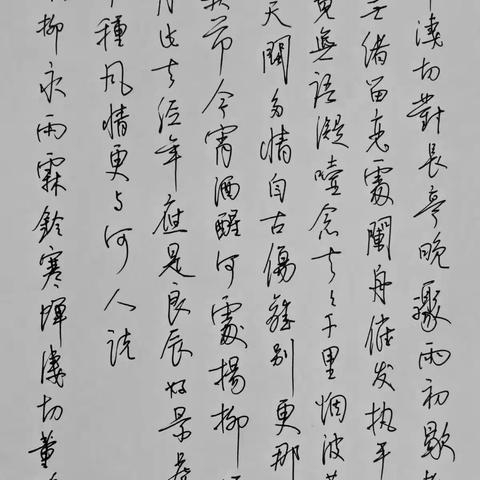 淒切對長亭晚驟雨初歇
无緒留恋處闌舟催发执手
竟無語凝噎念去々千里烟波
天闊多情自古傷離别更那
节今宵酒醒何處楊柳
月此去经年應是良辰好景
種风情更与何人説
柳永雨霖鈴寒蝉淒切董